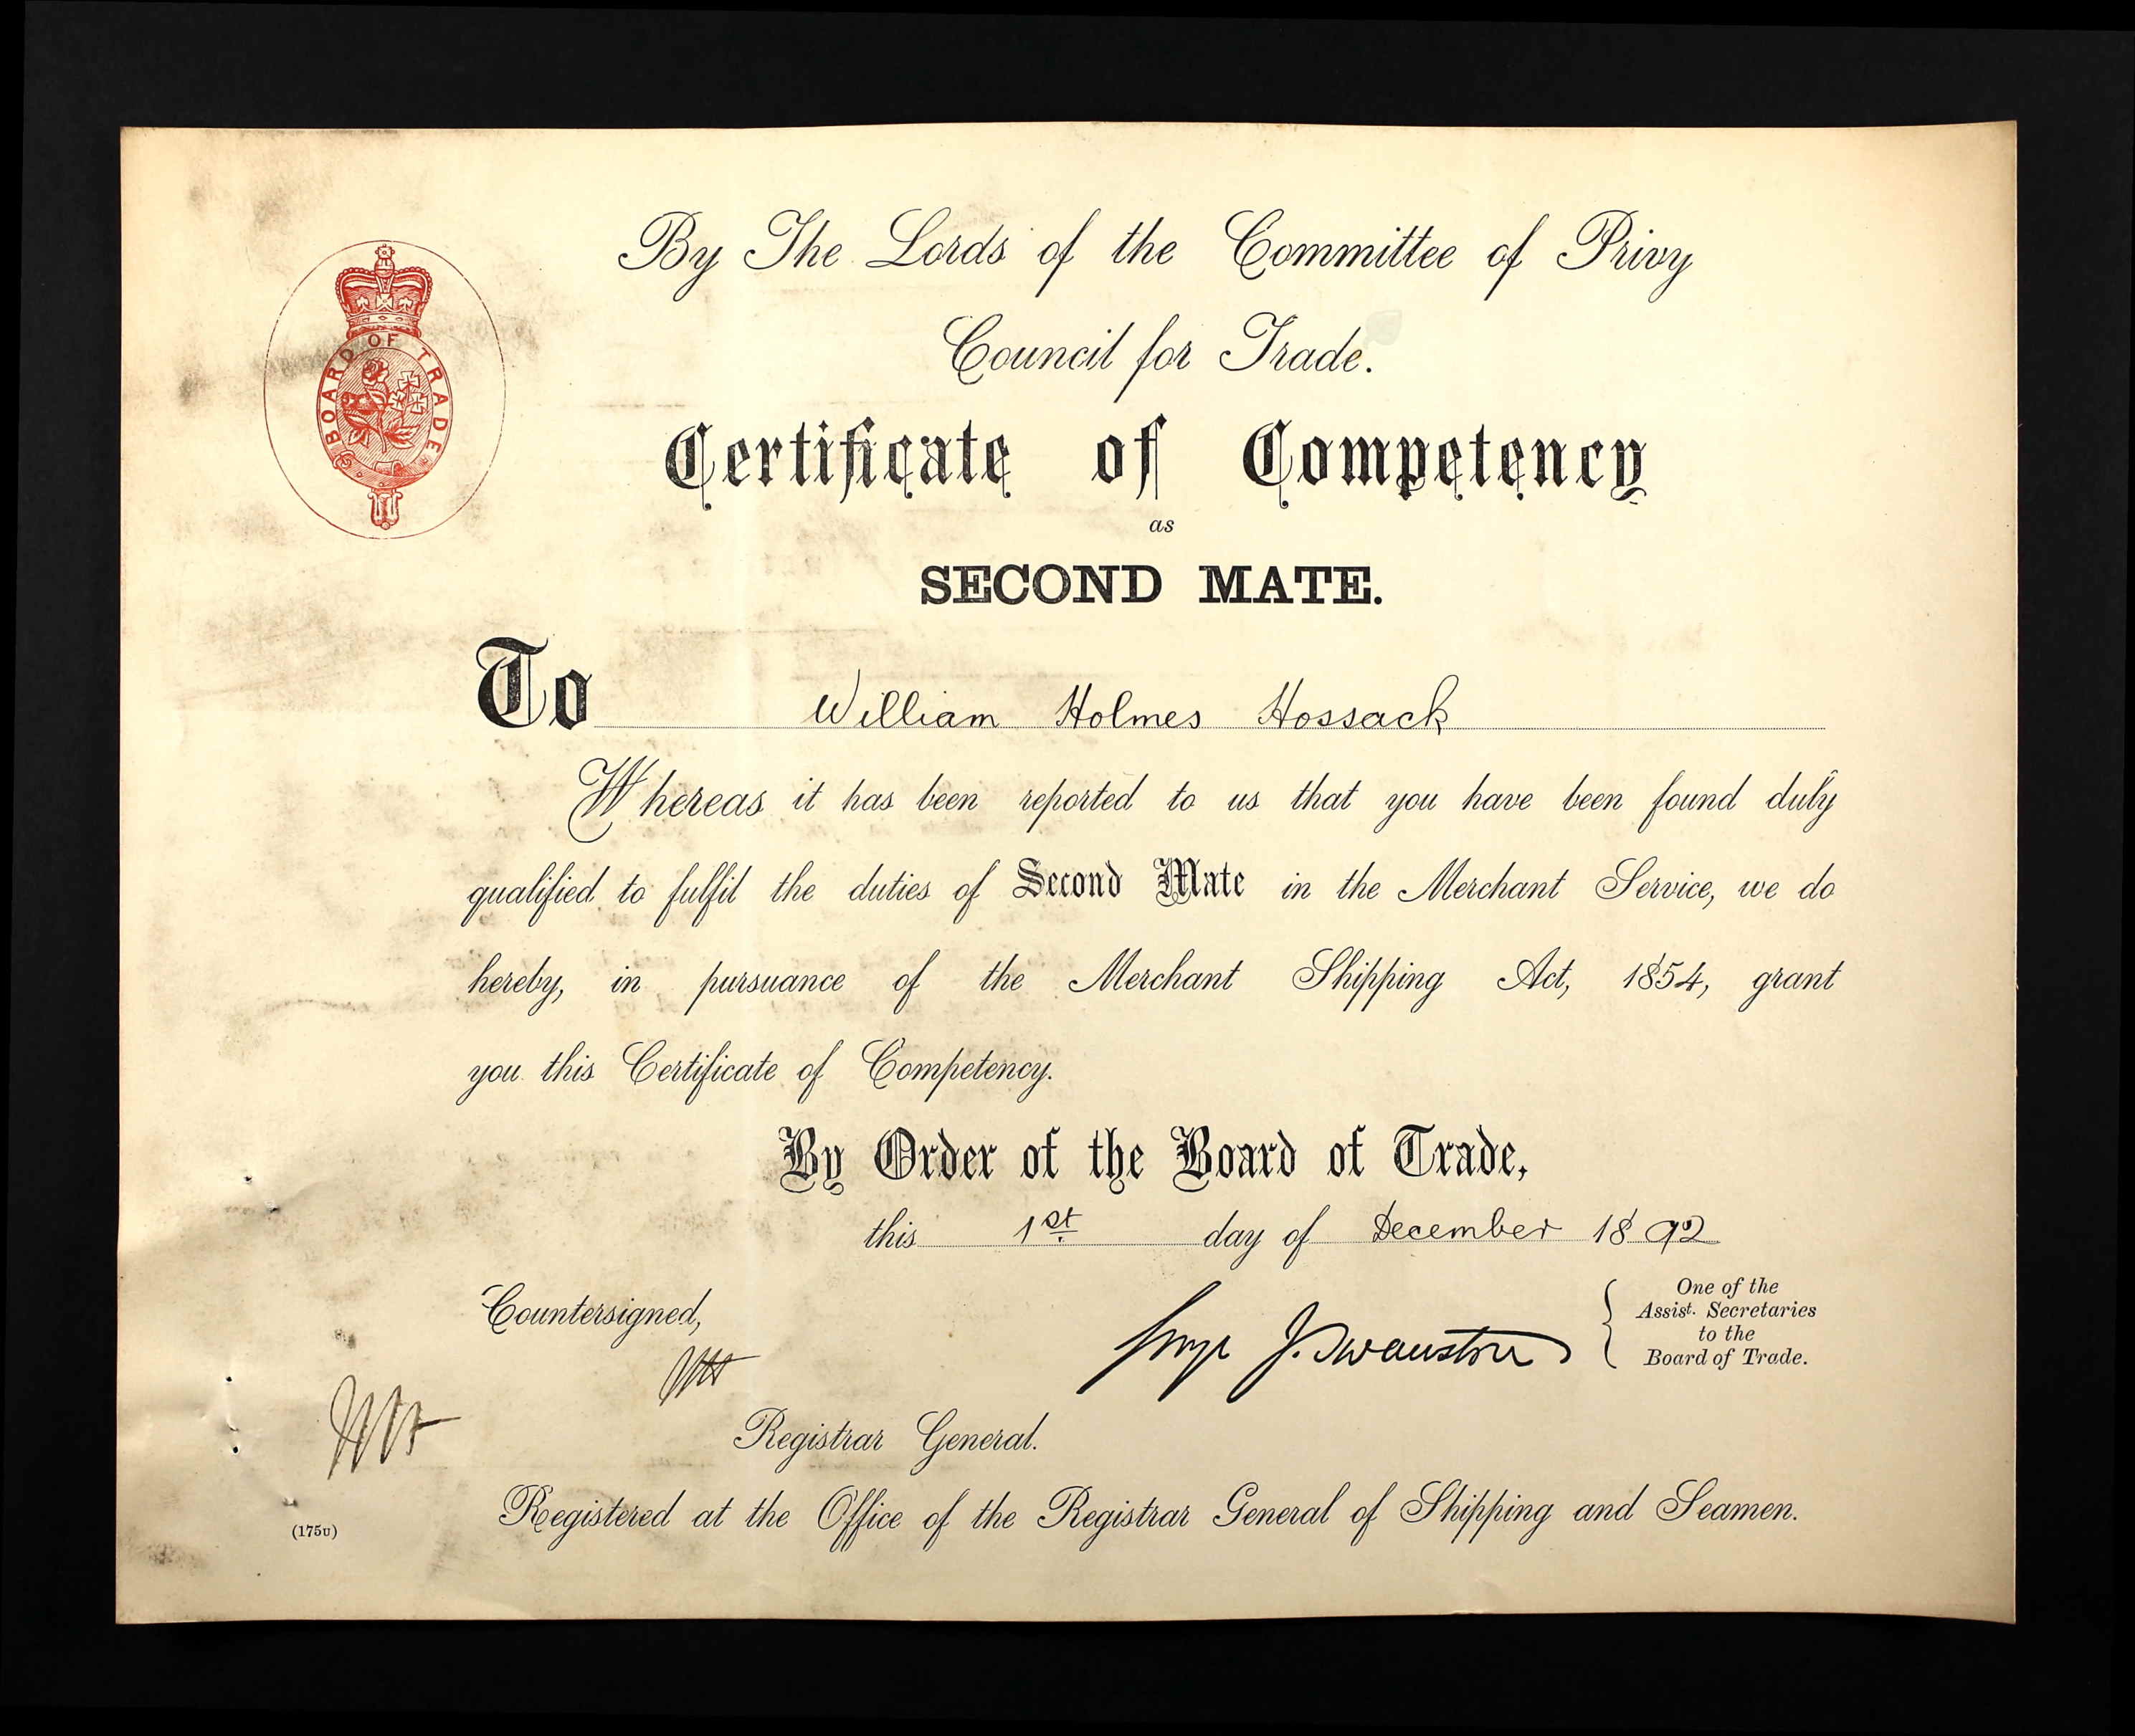 By The Lords of the Committee of Privy
Council for Trade.
BOARD OF TRADE
Certificate of Competency
as
SECOND MATE.
To William Holmes Hossack
Whereas it has been reported to us that you have been found duly
qualified to fulfil the duties of Second Mate in the Merchant Service, we do
hereby, in pursuance of the Merchant Shipping Act, 1854, grant
you this Certificate of Competency.
By Order of the Board of Trade,
this 1st day of December 1892
Countersigned,
J. Swanston
One of the
Assist. Secretaries
to the
Board of Trade.
Registrar General.
Registered at the Office of the Registrar General of Shipping and Seamen.
(175v)